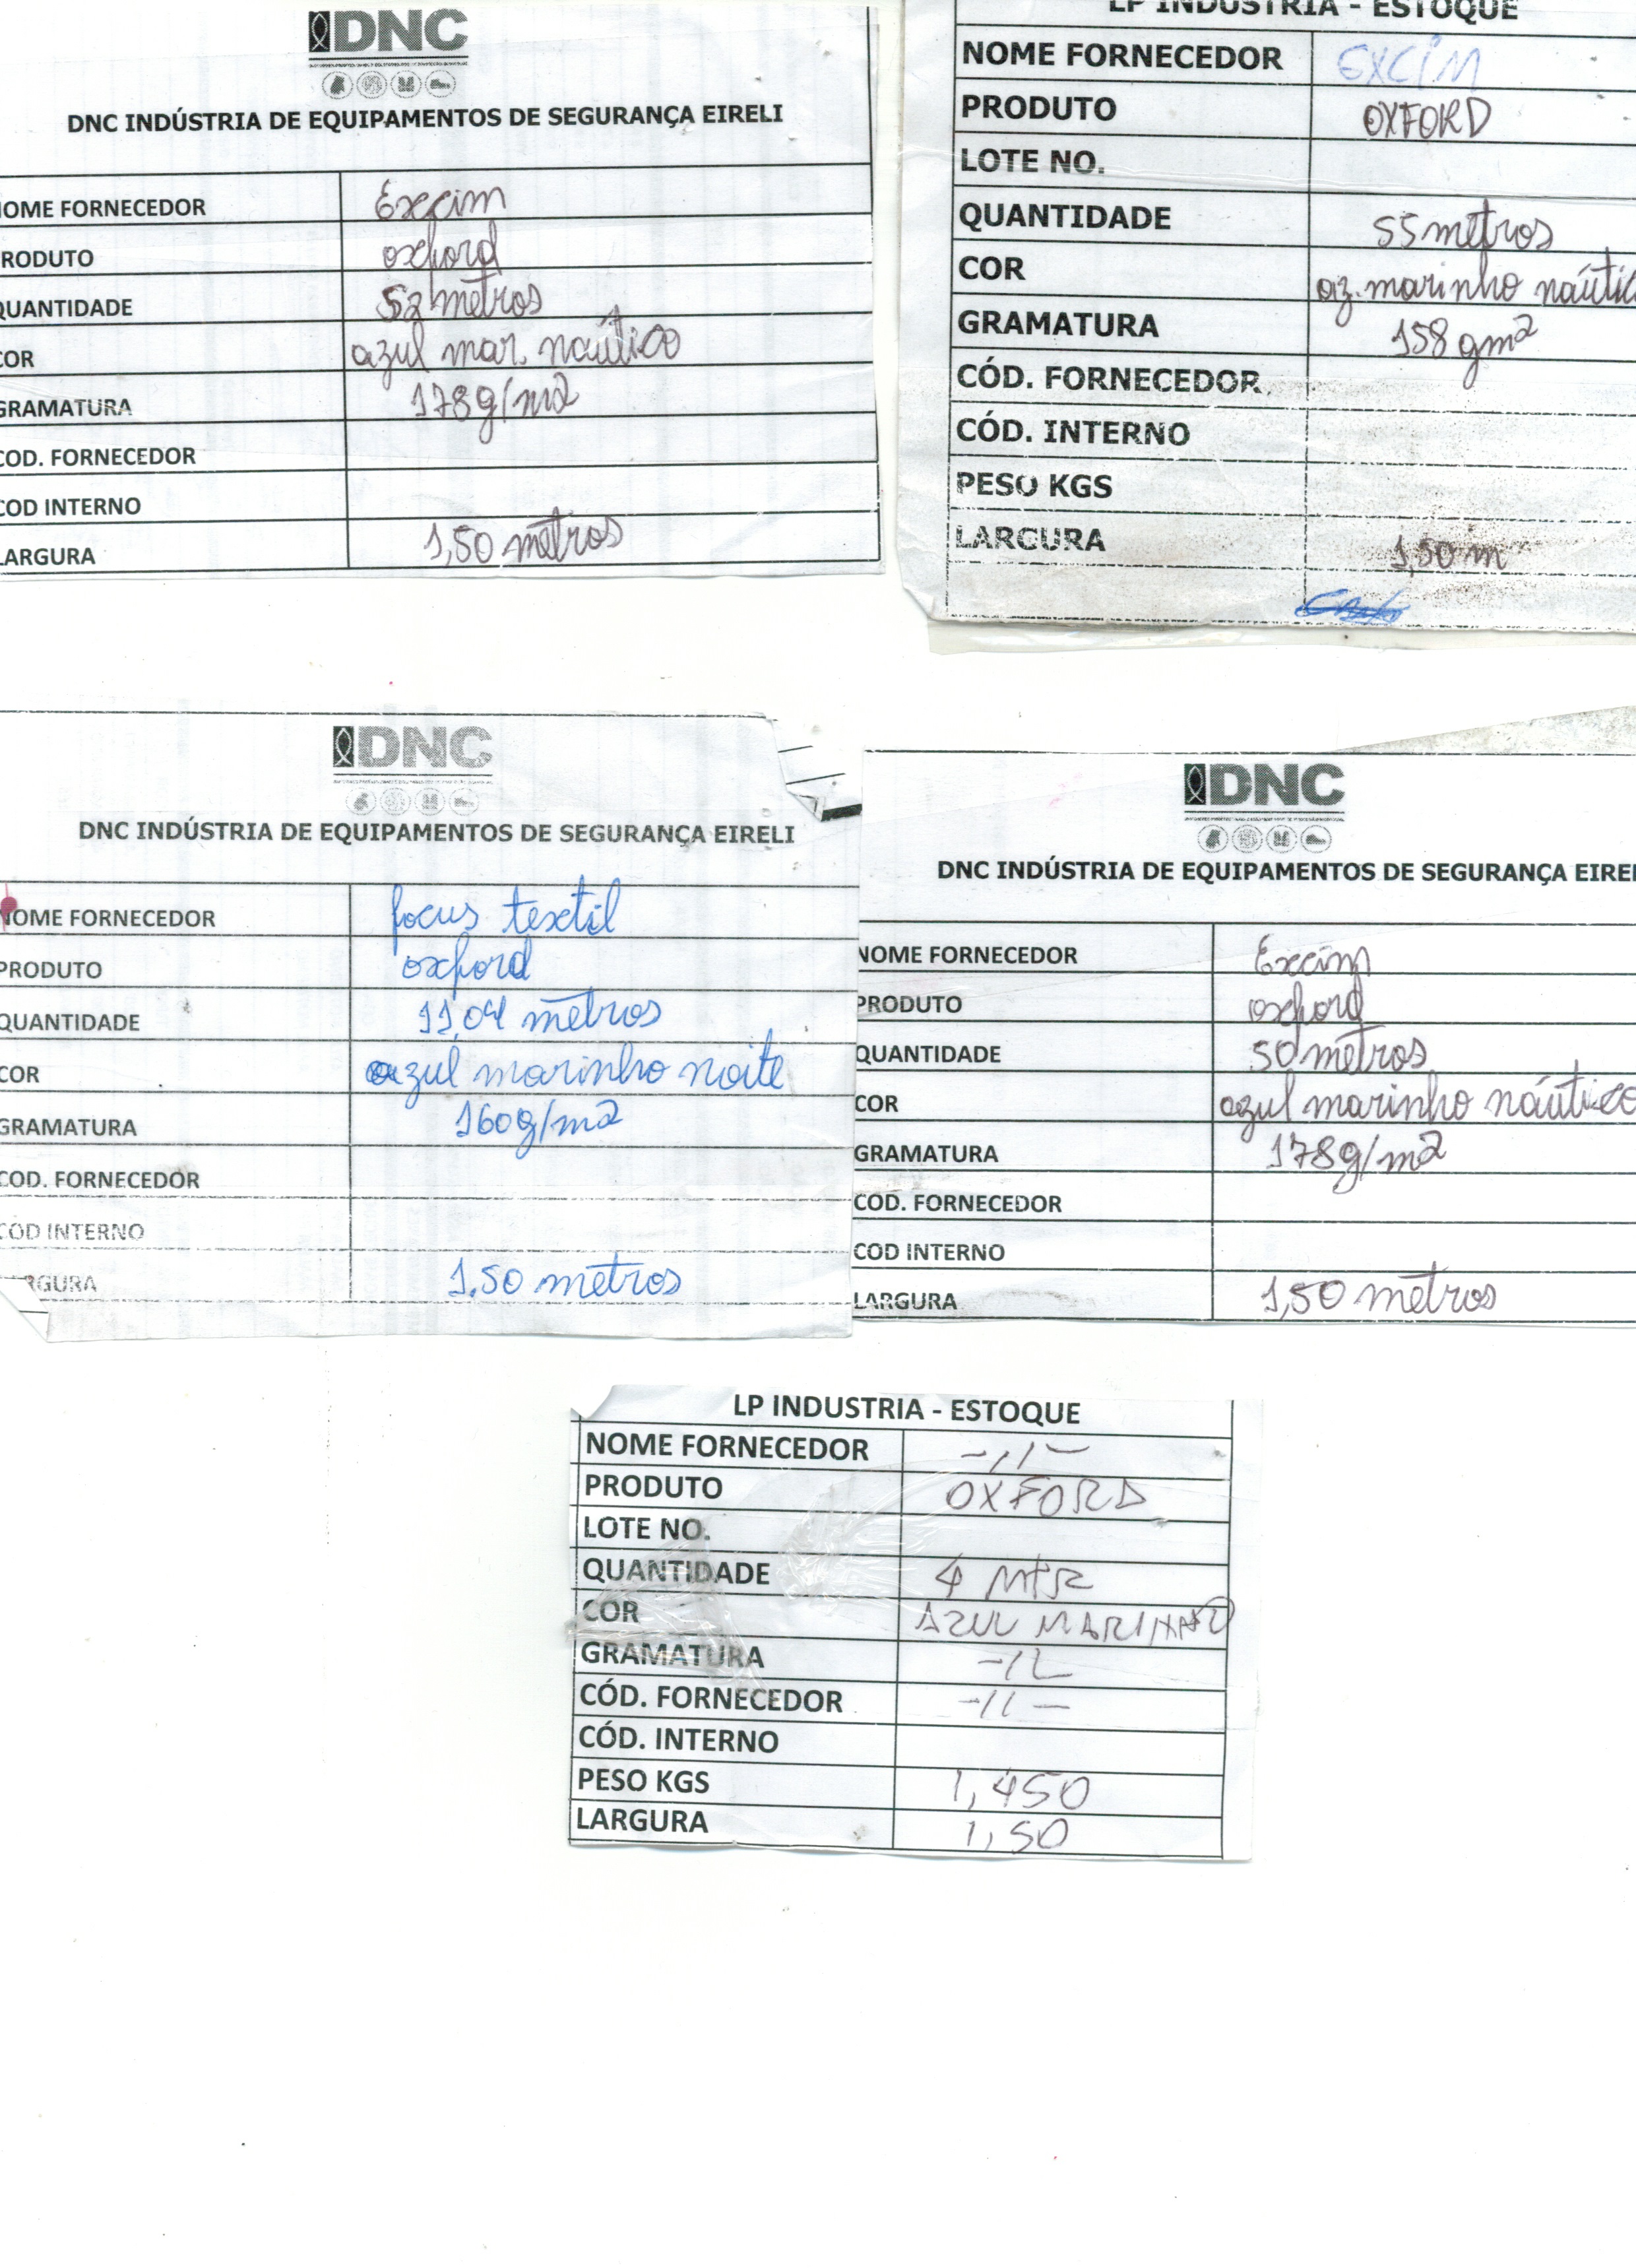 DNC
DNC INDÚSTRIA DE EQUIPAMENTOS DE SEGURANÇA EIRELI
OME FORNECEDOR Excim
RODUTO oxford
QUANTIDADE 52 metros
COR azul mar. naútico
GRAMATURA 178g/m2
COD. FORNECEDOR
COD INTERNO
LARGURA 1,50 metros
LP INDUSTRIA - ESTOQUE
NOME FORNECEDOR EXCIM
PRODUTO OXFORD
LOTE NO.
QUANTIDADE 55 metros
COR az. marinho naútic
GRAMATURA 158 gm2
CÓD. FORNECEDOR
CÓD. INTERNO
PESO KGS
LARGURA 1,50 m
DNC
DNC INDÚSTRIA DE EQUIPAMENTOS DE SEGURANÇA EIRELI
NOME FORNECEDOR focus textil
PRODUTO oxford
QUANTIDADE 11,04 metros
COR azul marinho noite
GRAMATURA 160g/m2
COD. FORNECEDOR
COD INTERNO
RGURA 1.50 metros
DNC
DNC INDÚSTRIA DE EQUIPAMENTOS DE SEGURANÇA EIREL
NOME FORNECEDOR Excim
PRODUTO oxford
QUANTIDADE 50 metros
COR azul marinho náutico
GRAMATURA 178g/m2
COD. FORNECEDOR
COD INTERNO
LARGURA 1,50 metros
LP INDUSTRIA - ESTOQUE
NOME FORNECEDOR -//-
PRODUTO OXFORD
LOTE NO.
QUANTIDADE 4 MTR
COR AZUL MARINHO
GRAMATURA -//
CÓD. FORNECEDOR -//-
CÓD. INTERNO
PESO KGS 1,450
LARGURA 1,50